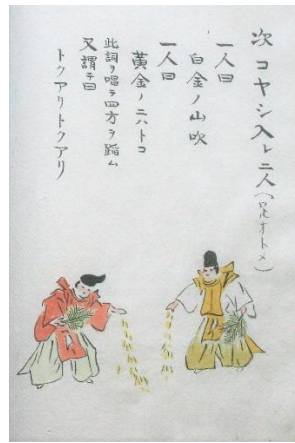 次コヤシ入レ二人
一人曰
白金ノ山吹
一人曰
黄金ノニハトコ
此詞ヲ唱テ四方ヲ踏ム
又謂テ曰
トクアリトクアリ